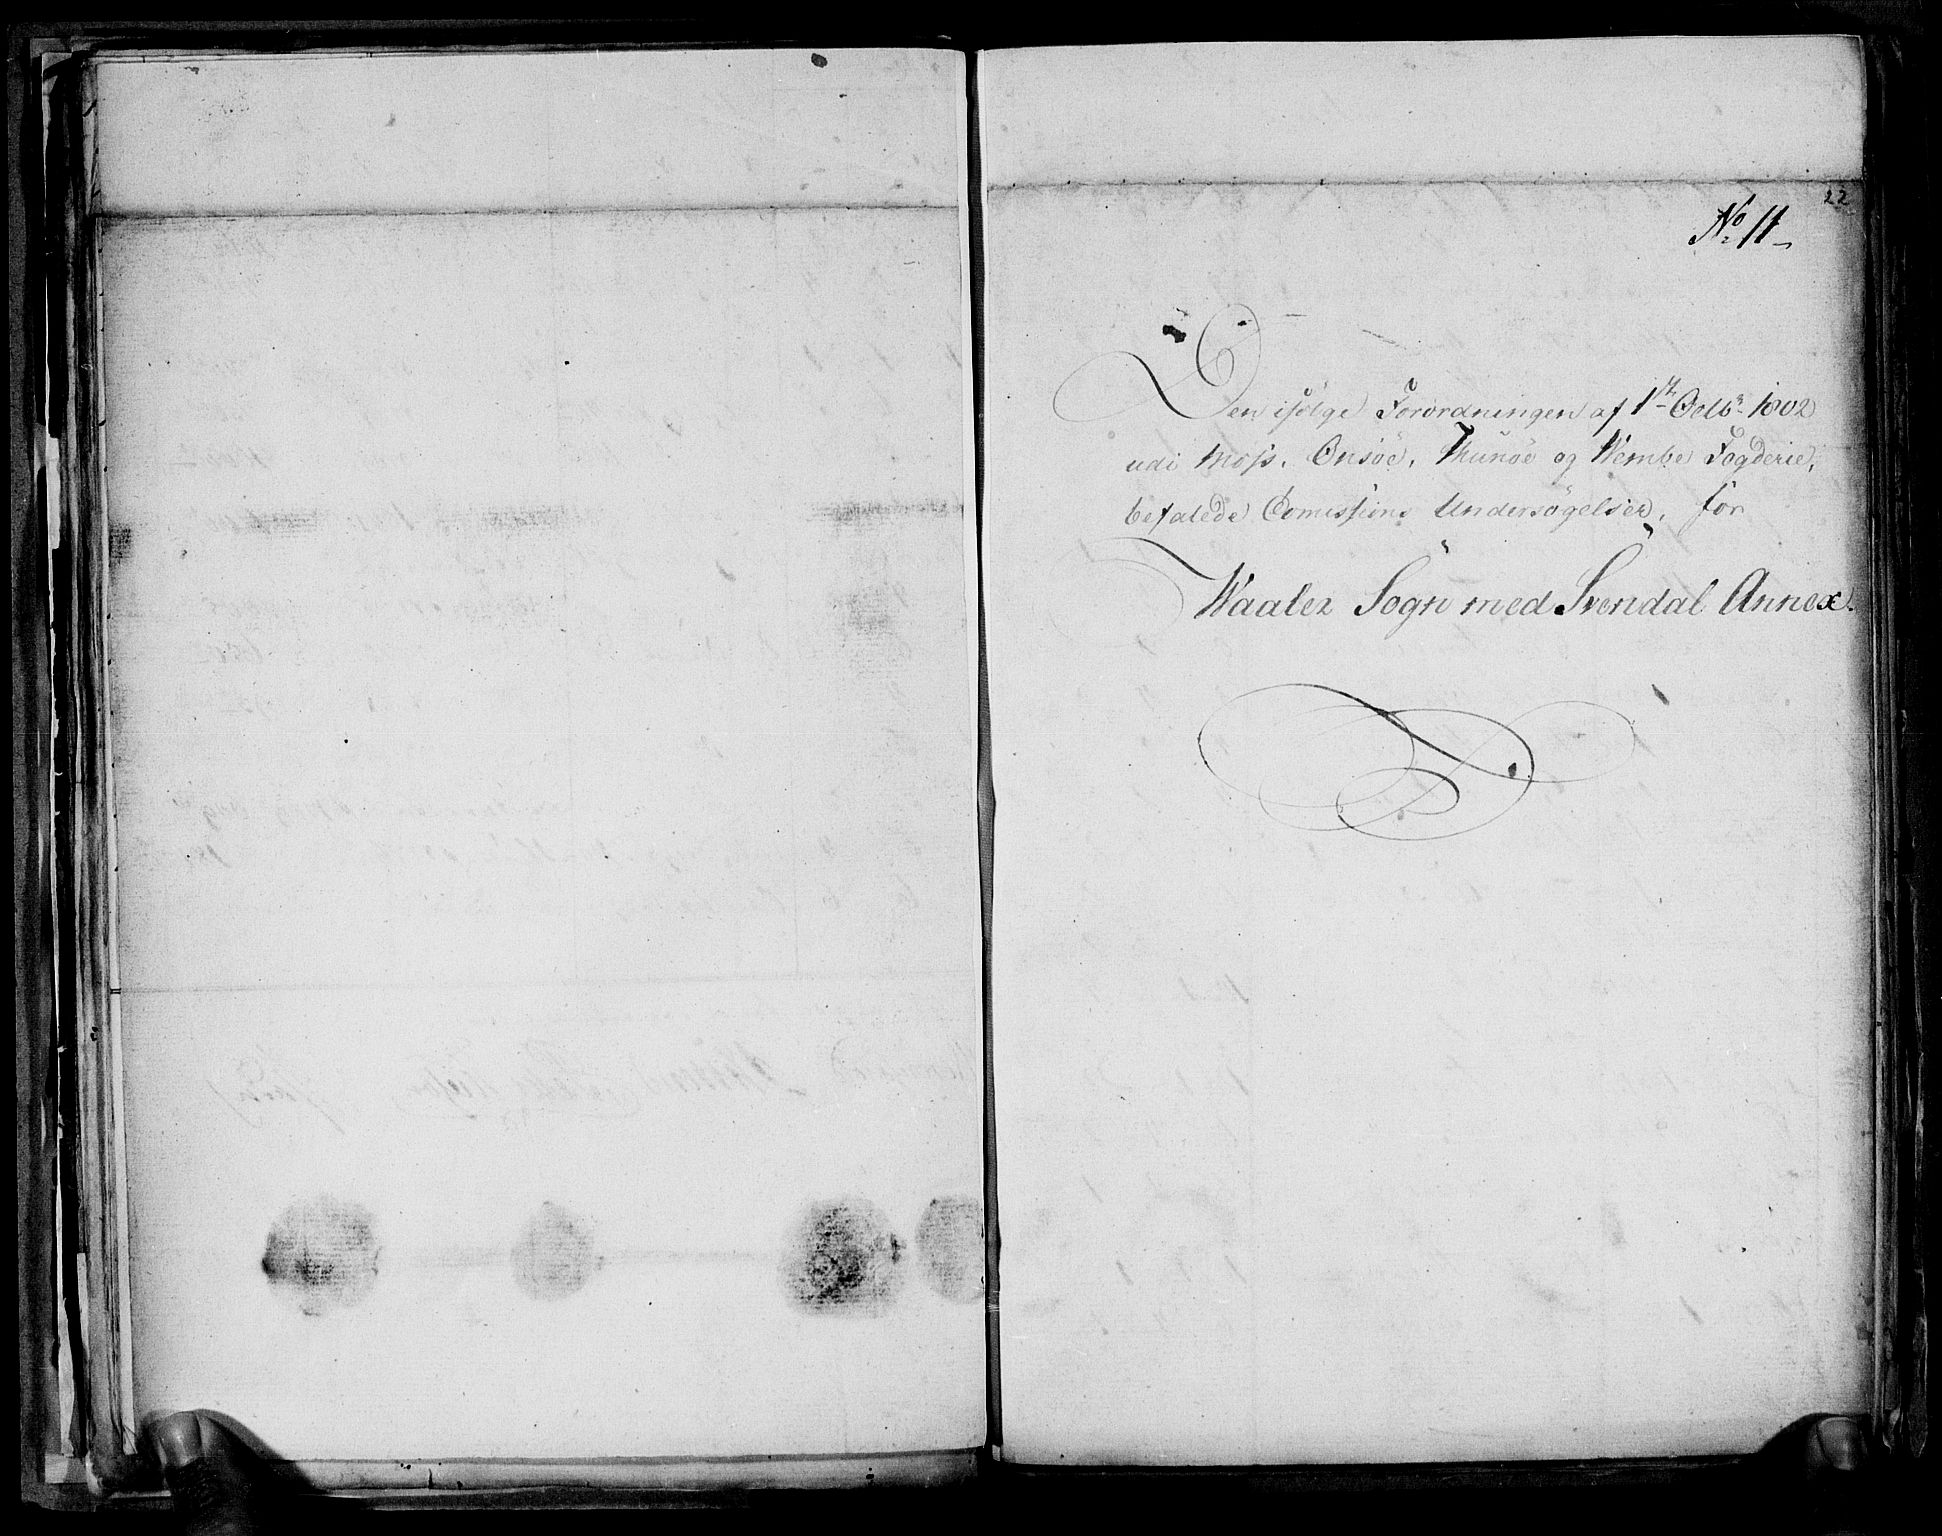 22
No 11
Den ifölge Forordningen af 1ste Octbr 1802
udi Moss, Onsöe, Thunöe og Wembe Fogderie,
befalede Comissions Undersögelser, for
Waaler Sogn med Svendal Annex.